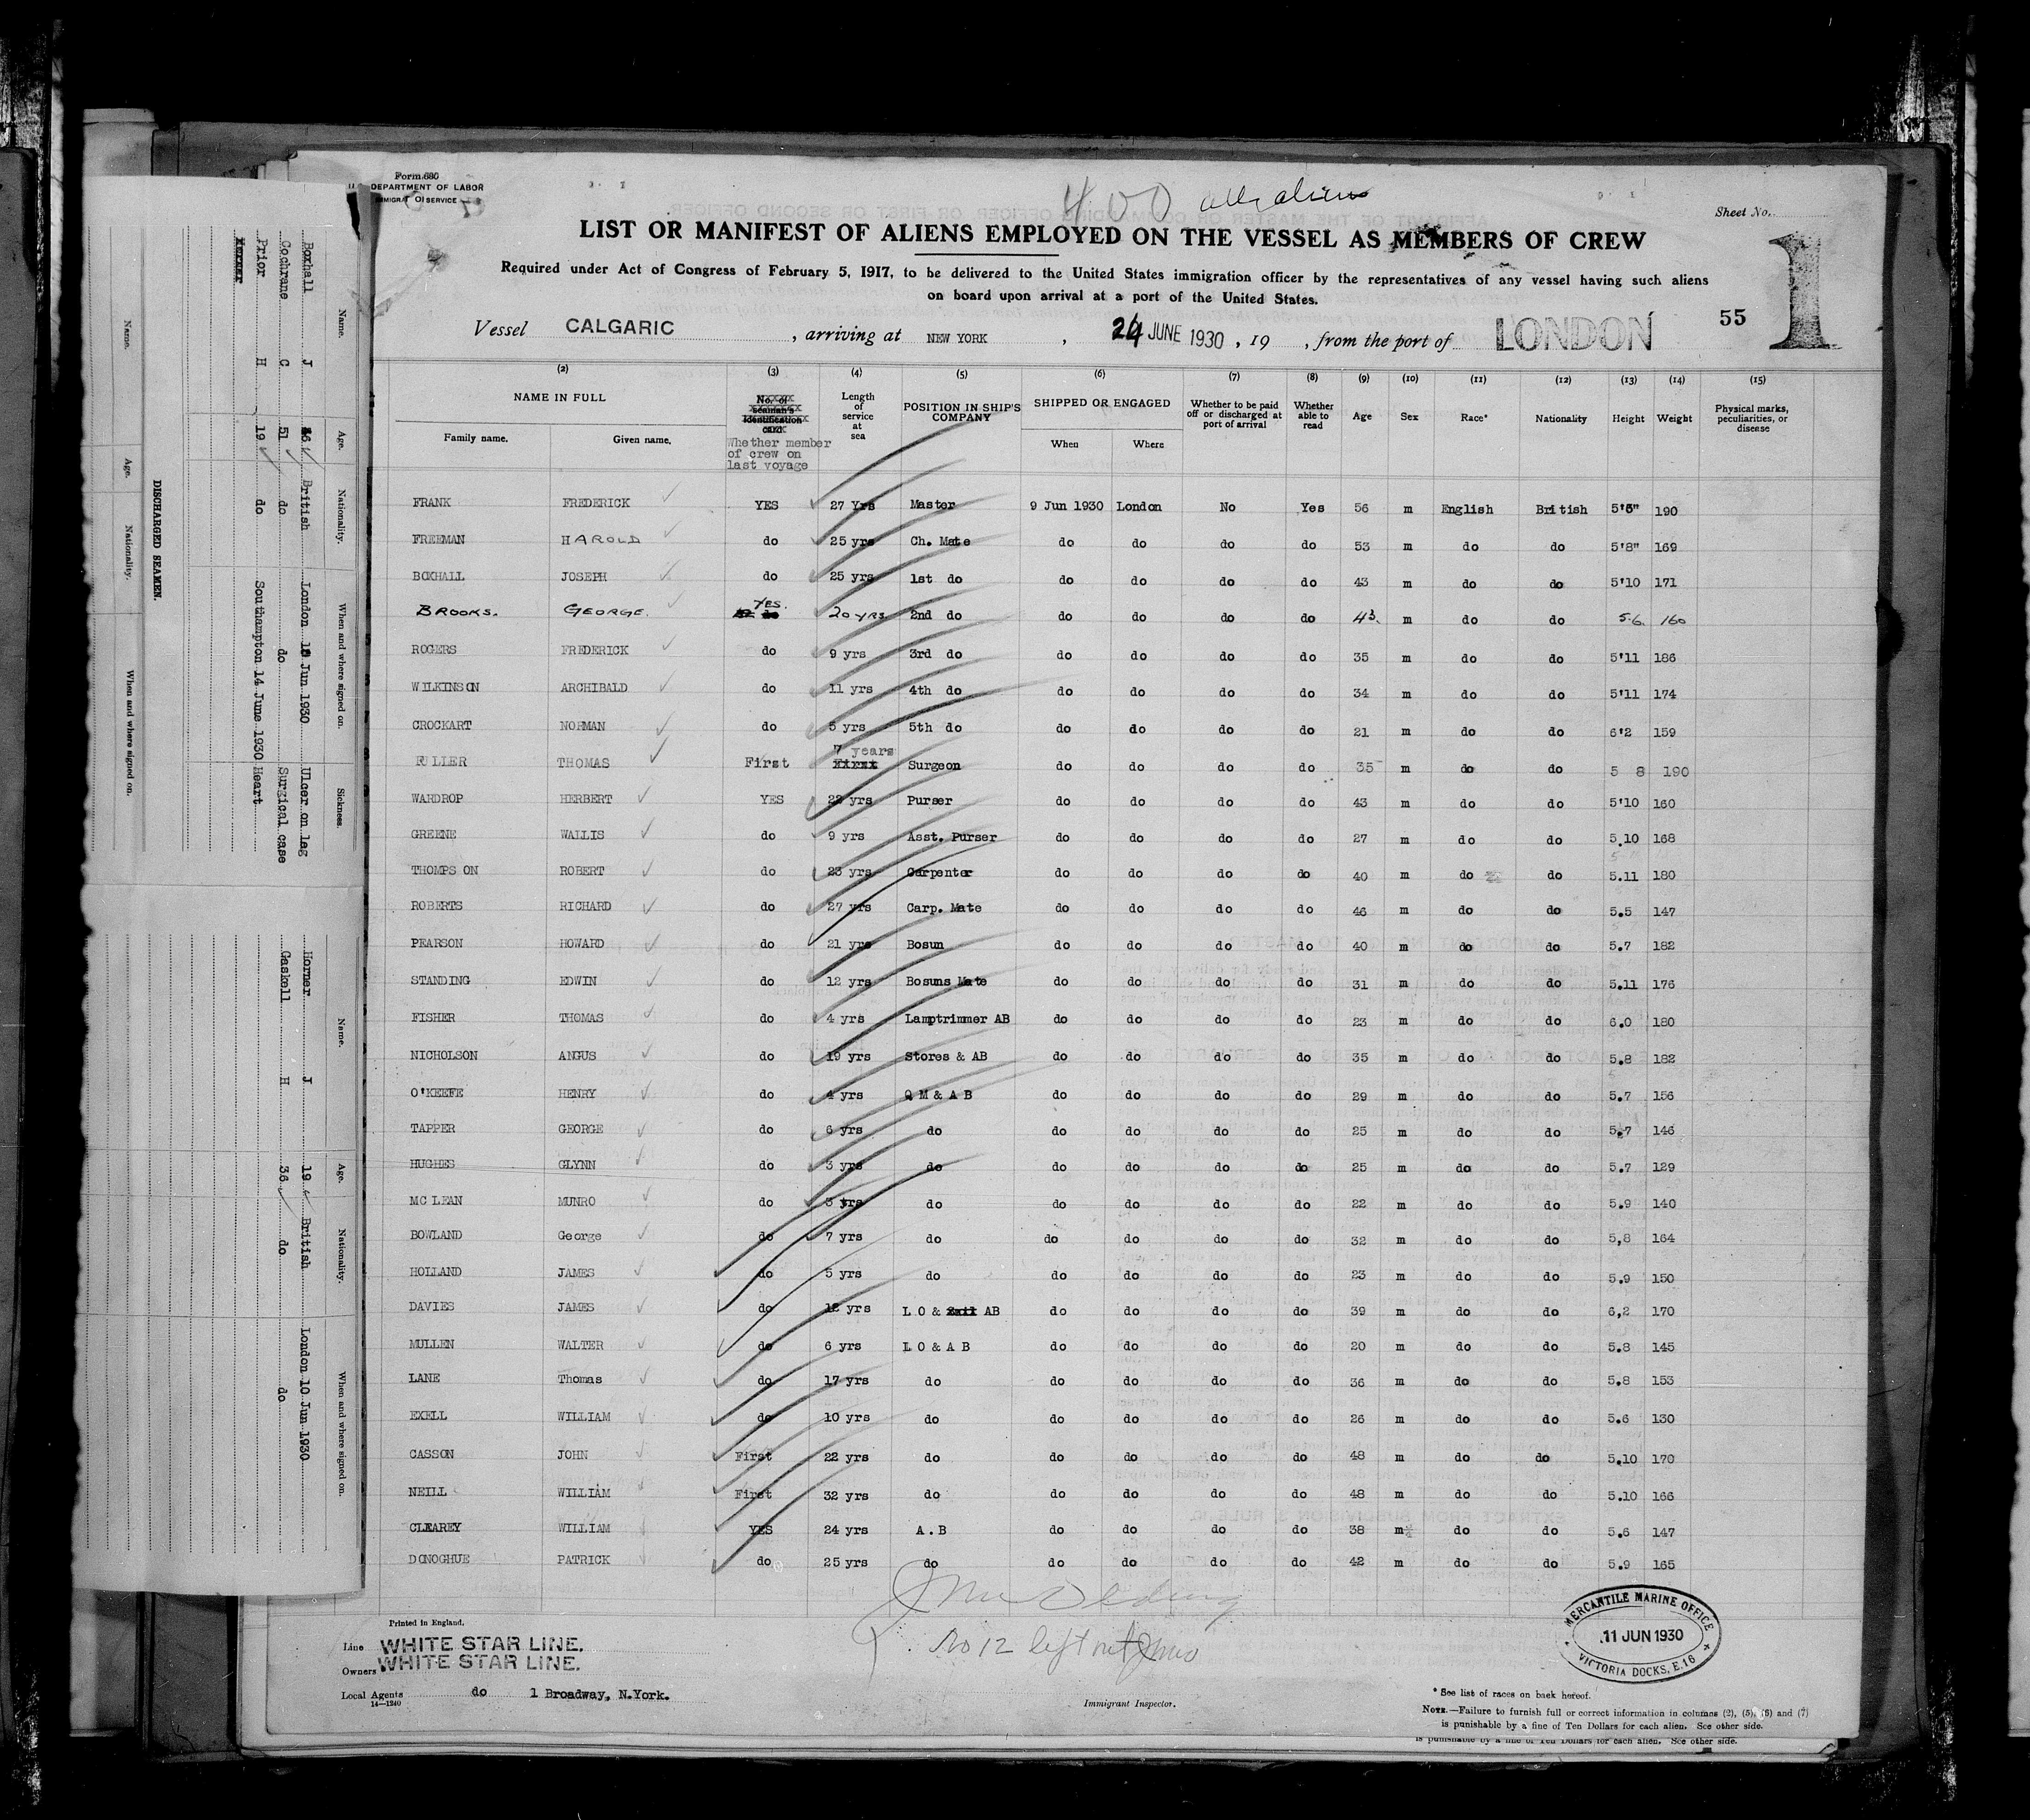 Form 680
DEPARTMENT OF LABOR
IMMIGRAT SERVICE
400 all aliens
Sheet No.
LIST OR MANIFEST OF ALIENS EMPLOYED ON THE VESSEL AS MEMBERS OF CREW
1
Required under Act of Congress of February 5, 1917, to be delivered to the United States immigration officer by the representatives of any vessel having such aliens
on board upon arrival at a port of the United States.
55
Vessel CALGARIC, arriving at NEW YORK, 24 JUNE 1930, 19 , from the port of LONDON
(2) (3) (4) (5) (6) (7) (8) (9) (10) (11) (12) (13) (14) (15)
NAME IN FULL
Family name. Given name.
No. of seaman's identification card
Whether member of crew on last voyage
Length of service at sea
POSITION IN SHIP'S COMPANY
SHIPPED OR ENGAGED
When Where
Whether to be paid off or discharged at port of arrival
Whether able to read
Age Sex Race* Nationality Height Weight
Physical marks, peculiarities, or disease
FRANK FREDERICK YES 27 Yrs Master 9 Jun 1930 London No Yes 56 m English British 190
FREEMAN HAROLD do 25 yrs Ch. Mate do do do do 53 m do do 5'8" 169
BOXHALL JOSEPH do 25 yrs 1st do do do do do 43 m do do 5'10 171
BROOKS. GEORGE. YES. 20 YRS 2nd do do do do do 43. m do do 5.6. 160
ROGERS FREDERICK do 9 yrs 3rd do do do do do 35 m do do 5'11 186
WILKINSON ARCHIBALD do 11 yrs 4th do do do do do 34 m do do 5'11 174
CROCKART NORMAN do 5 yrs 5th do do do do do 21 m do do 6'2 159
FULLER THOMAS First 7 years Surgeon do do do do 35 m do do 5 8 190
WARDROP HERBERT YES 22 yrs Purser do do do do 43 m do do 5'10 160
GREENE WALLIS do 9 yrs Asst. Purser do do do do 27 m do do 5.10 168
THOMPSON ROBERT do 23 yrs Carpenter do do do do 40 m do do 5.11 180
ROBERTS RICHARD do 27 yrs Carp. Mate do do do do 46 m do do 5.5 147
PEARSON HOWARD do 21 yrs Bosun do do do do 40 m do do 5.7 182
STANDING EDWIN do 12 yrs Bosuns Mate do do do do 31 m do do 5.11 176
FISHER THOMAS do 4 yrs Lamptrimmer AB do do do do 23 m do do 6.0 180
NICHOLSON ANGUS do 19 yrs Stores & AB do do do do 35 m do do 5.8 182
O'KEEFE HENRY do 4 yrs Q M & A B do do do do 29 m do do 5.7 156
TAPPER GEORGE do 6 yrs do do do do do 25 m do do 5.7 146
HUGHES GLYNN do 3 yrs do do do do do 25 m do do 5.7 129
MC LEAN MUNRO do 3 yrs do do do do do 22 m do do 5.9 140
BOWLAND George do 7 yrs do do do do do 32 m do do 5,8 164
HOLLAND JAMES do 5 yrs do do do do do 23 m do do 5.9 150
DAVIES JAMES do 12 yrs L O & AB do do do do 39 m do do 6,2 170
MULLEN WALTER do 6 yrs L O & A B do do do do 20 m do do 5.8 145
LANE Thomas do 17 yrs do do do do do 36 m do do 5.8 153
EXELL WILLIAM do 10 yrs do do do do do 26 m do do 5.6 130
CASSON JOHN First 22 yrs do do do do do 48 m do do 5.10 170
NEILL WILLIAM First 32 yrs do do do do do 48 m do do 5.10 166
CLEAREY WILLIAM YES 24 yrs A.B do do do do 38 m do do 5.6 147
DONOGHUE PATRICK do 25 yrs do do do do do 42 m do do 5.9 165
No 12 left
Printed in England.
Line WHITE STAR LINE.
Owners WHITE STAR LINE.
Local Agents do 1 Broadway, N.York.
14—1240
Immigrant Inspector.
MERCANTILE MARINE OFFICE
11 JUN 1930
VICTORIA DOCKS, E.16
* See list of races on back hereof.
NOTE.—Failure to furnish full or correct information in columns (2), (5), (6) and (7)
is punishable by a fine of Ten Dollars for each alien. See other side.
is punishable by a fine of Ten Dollars for each alien. See other side.
Name. Age. Nationality. When and where signed on. Sickness.
Boxhall J 46 British London Jun 1930 Ulcer on leg
Cochrane C 51 do do Surgical case
Prior H 19 do Southampton 14 June 1930 Heart
Horner
DISCHARGED SEAMEN.
Name. Age. Nationality. When and where signed on.
Name. Age. Nationality. When and where signed on.
Horner J 19 British London 10 Jun 1930
Gaskell H 36 do do